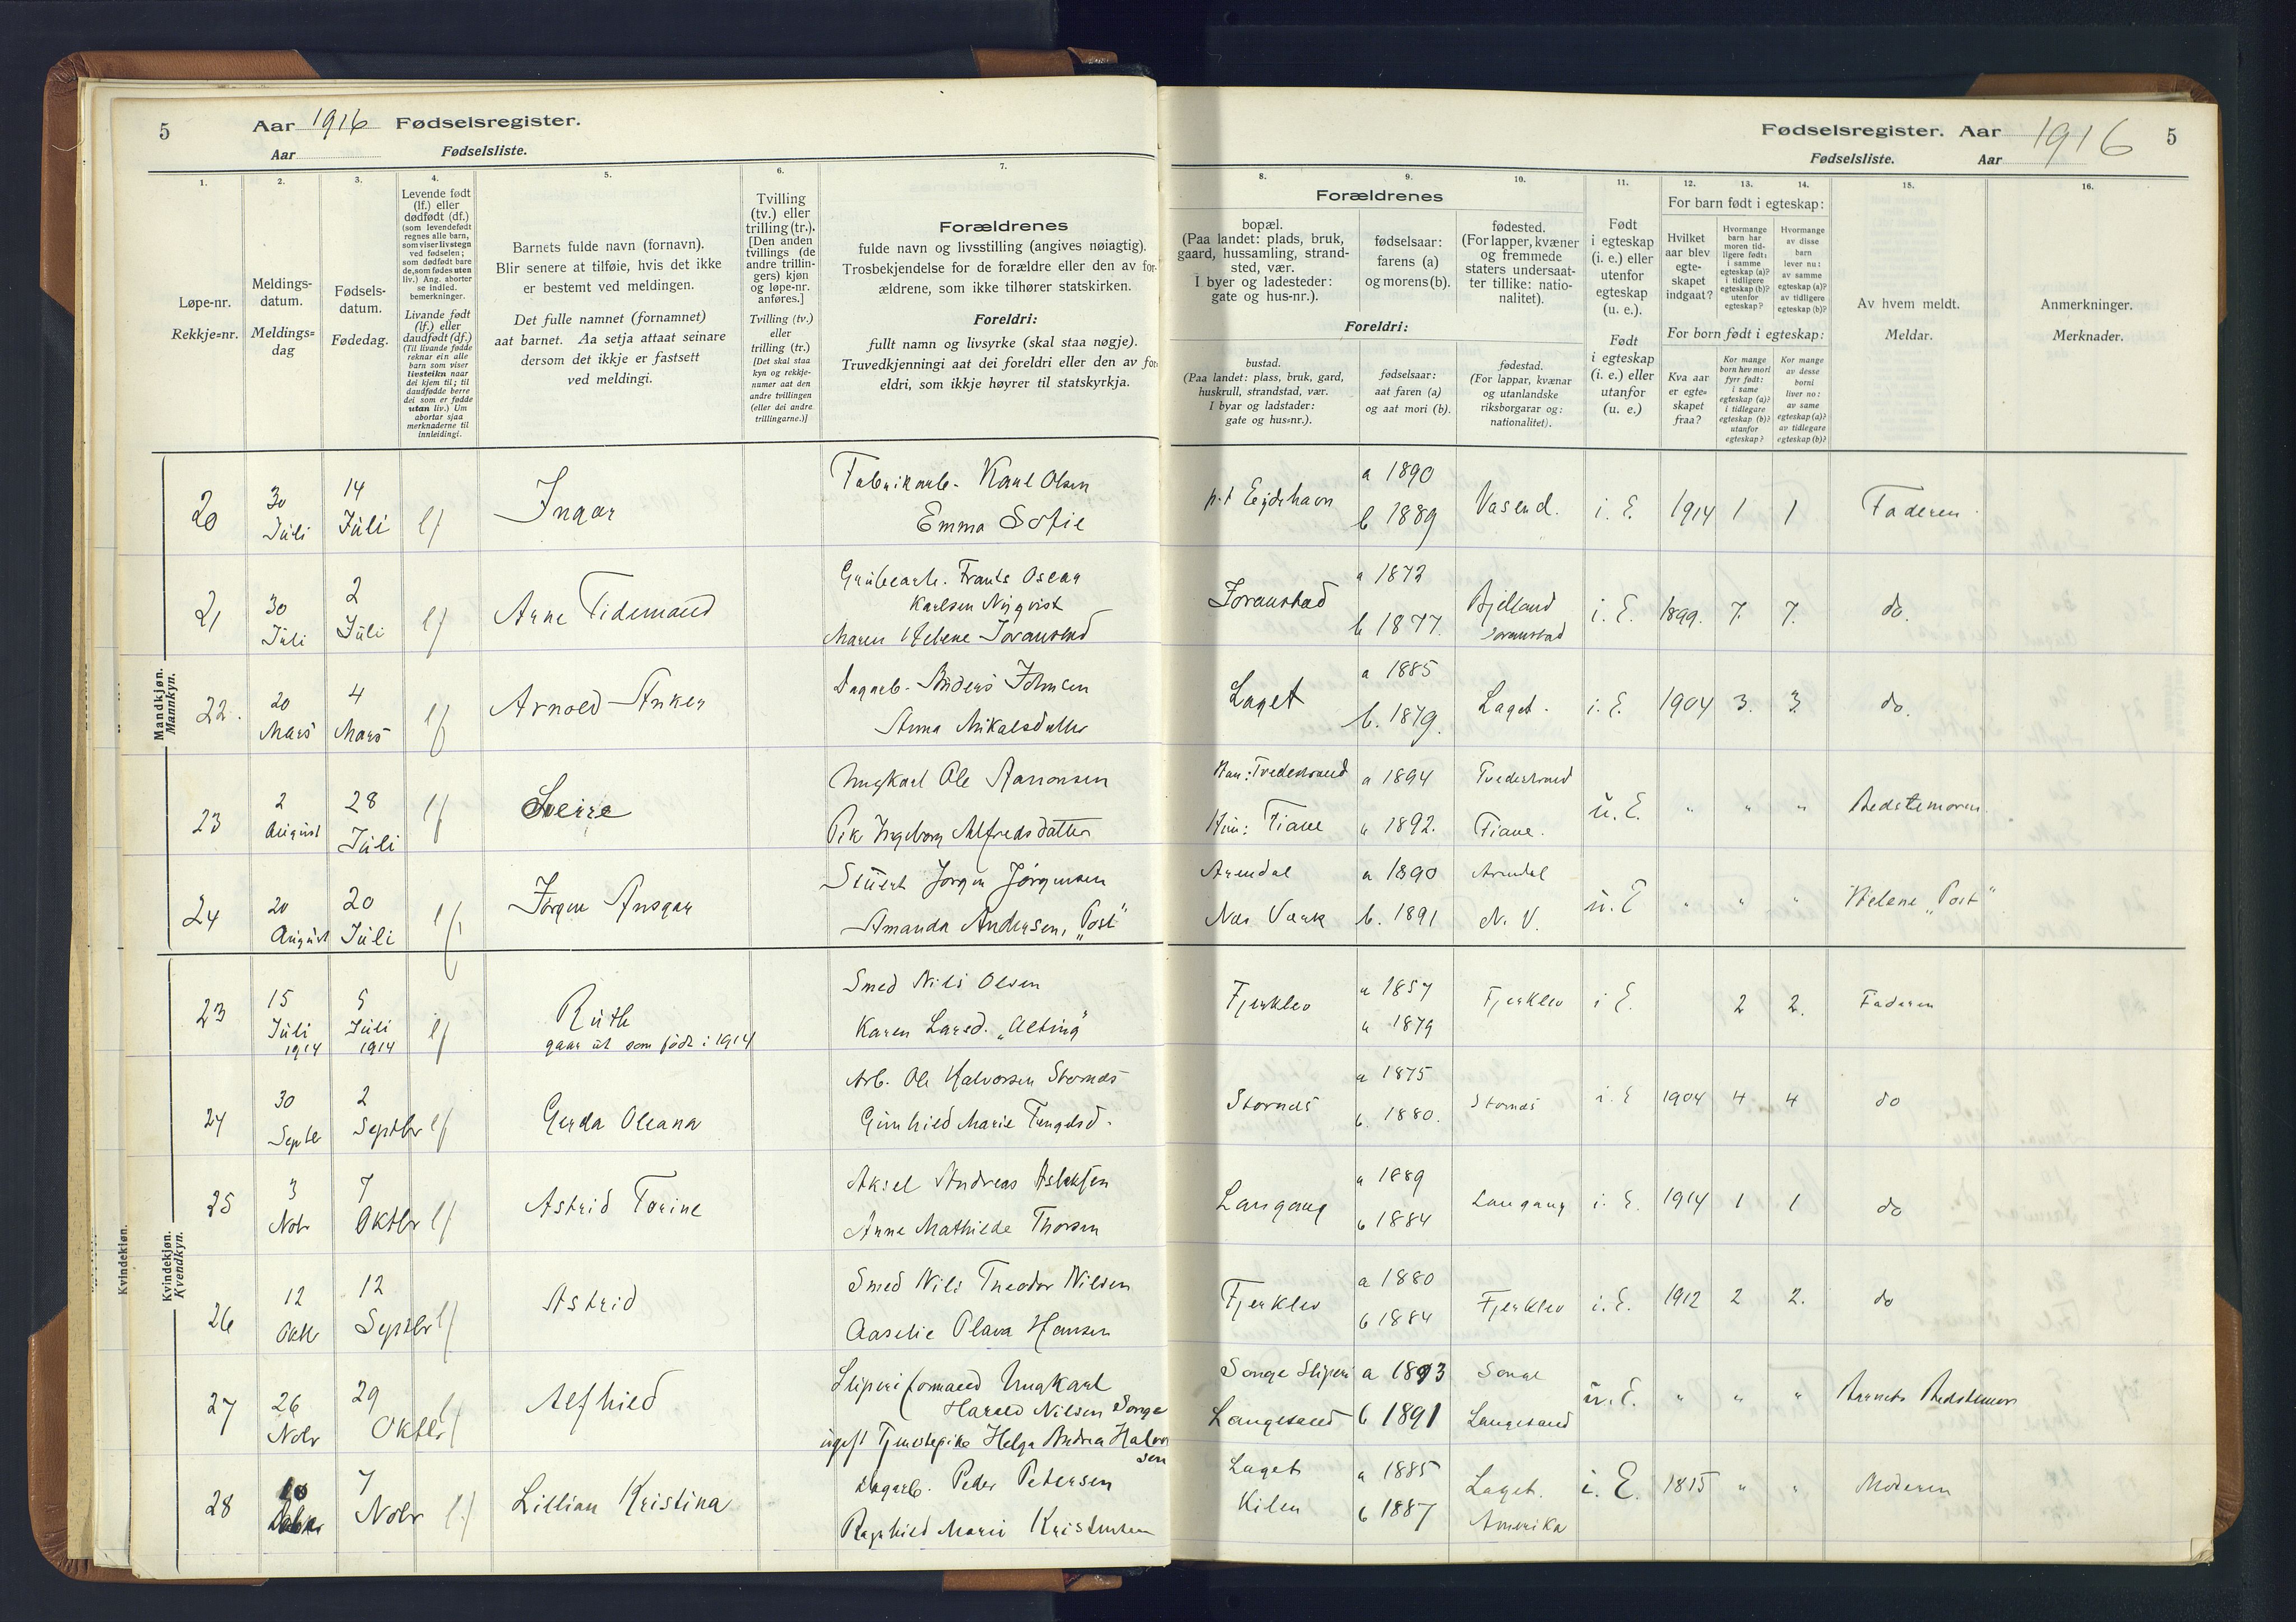 5
Aar 1916 Fødselsregister.
Aar Fødselsliste.
1. 2. 3. 4. 5. 6. 7.
Løpe-nr.
Rekkje=nr.
Meldings-
datum.
Meldings=
dag
Fødsels-
datum.
Fødedag.
Levende født
(lf.) eller
dødfødt (df.)
(som levendefødt
regnes alle barn,
som viser livstegn
ved fødselen;
som dødfødt bare
de, som fødes uten
liv.) Ang. aborter
se indled.
bemerkninger.
Livande født
(lf.) eller
daudfødt (df.)
(Til livande fødde
reknar ein alle
barn som viser
livsteikn naar
dei kjem til; til
daudfødde berre
dei som er fødde
utan liv.) Um
abortar sjaa
merknaderne til
innleidingi.
Barnets fulde navn (fornavn).
Blir senere at tilføie, hvis det ikke
er bestemt ved meldingen.
Det fulle namnet (fornamnet)
aat barnet. Aa setja attaat seinare
dersom det ikkje er fastsett
ved meldingi.
Tvilling
(tv.) eller
trilling (tr.).
[Den anden
tvillings (de
andre trillin-
gers) kjøn
og løpe-nr.
anføres.]
Tvilling (tv.)
eller
trilling (tr.)
[Det skal staa
kyn og rekkje-
numer aat den
andre tvillingen
(eller dei andre
trillingarne.)]
Forældrenes
fulde navn og livsstilling (angives nøiagtig).
Trosbekjendelse for de forældre eller den av for-
ældrene, som ikke tilhører statskirken.
Foreldri:
fullt namn og livsyrke (skal staa nøgje).
Truvedkjenningi aat dei foreldri eller den av for
eldri, som ikkje høyrer til statskyrkja.
Mandkjøn.
Mannkyn.
20 30 Juli 14 Juli lf Ingar
Fabrikarb. Karl Olsen
Emma Sofie
21 30 Juli 2 Juli lf Arne Tidemand
Grubearb. Frants Oscar
Karlsen Nyqvist
Maren Helene Joranstad
22. 20 Mars 4 Mars lf Arnold Anker
Dagarb. Anders Johnsen
Anna Mikalsdatter
23 2 August 28 Juli lf Sverre
Ungkarl Ole Aanonsen
Pike Ingeborg Alfredsdatter
24 20 August 20 Juli lf. Jørgen Ansgar
Stuert Jørgen Jørgensen
Amanda Andersen, "Post"
Kvindekjøn.
Kvindekjøn.
Kvendkyn.
23 15 Juli 1914 5 Juli 1914 lf Ruth
gaar ut som født i 1914
Smed Nils Olsen
Karen Larsd.
24 30 Septbr 2 Septbr lf Gerda Oleana
Arb. Ole Halvorsen Stornes
Gunhild Marie
25 3 Novbr 7 Oktbr lf Astrid Torine
Aksel Andreas Aslaksen
Anna Mathilde Thorsen
26 12 Oktbr 12 Septbr lf Astrid
Smed Nils Theodor Nilsen
Aaselie Olava Hansen
27 26 Novbr 29 Oktbr lf Alfhild
Sliperiformand Ungkarl
Harald Nilsen Songe
ugift Tjenestepike Helga Andrea Halvor
sen
28 10 7 Novbr lf Lillian Kristina
Dagarb. Peder Petersen
Ragnhild Marie Kristensen
Fødselsregister. Aar 1916 5
Fødselsliste. Aar
8. 9. 10. 11. 12. 13. 14. 15. 16.
Forældrenes
bopæl.
(Paa landet: plads, bruk,
gaard, hussamling, strand-
sted, vær.
I byer og ladesteder:
gate og hus-nr.).
fødselsaar:
farens (a)
og morens (b).
fødested.
(For lapper, kvæner
og fremmede
staters undersaat-
ter tillike: natio-
nalitet).
Foreldri:
bustad.
(Paa landet: plass, bruk, gard,
huskrull, strandstad, vær.
I byar og ladstader:
gate og hus=nr.).
fødselsaar:
aat faren (a)
og aat mori (b).
fødestad.
(For lappar, kvænar
og utanlandske
riksborgarar og:
nationalitet).
Født
i egteskap
(i. e.) eller
utenfor
egteskap
(u. e.).
Født
i egteskap
(i. e.) eller
utanfor
(u. e.)
For barn født i egteskap:
Hvilket
aar blev
egte-
skapet
indgaat?
Hvormange
barn har
moren tid-
ligere født:
i samme
egteskap (a)?
i tidligere
egteskap (b)?
utenfor
egteskap?
Hvormange
av disse
barn
lever nu:
av samme
egteskap (a)?
av tidligere
egteskap (b)?
For born født i egteskap:
Kva aar
er egte-
skapet
fraa?
Kor mange
born hev mori
fyrr født:
i same
egteskap (a)?
i tidlegare
egteskap (b)?
utanfor
egteskap?
Kor mange
av desse
borni
liver no:
av same
egteskap (a)?
av tidlegare
egteskap (b)?
Av hvem meldt.
Meldar.
Anmerkninger.
Merknader.
p.t Eydehavn a 1890 b 1889 Vasend. i. E. 1914 1 1 Faderen
Joranstad a 1872 b 1877. Bjelland Joranstad i. E. 1899. 7. 7. do.
Laget a 1885 b. 1879. Laget. i. E. 1904 3. 3. do.
Han: Tvedestrand a 1894 Tvedestrand
Hun: Fiane 1892. Fiane. u. E. " " " Bedstemoren.
Arendal a 1890 Arendal
Nes Verk b. 1891 N. V. u. E " " " Helene "Post"
Fjerklev a 1857 1879 Fjerklev i E. 2 2. Faderen
Stornes a 1875 b. 1880. Stornes i. E 1904 4 4 do
Langang a 1889 b 1884 Langang i. E. 1914 1 1 do
Fjerklev a 1880 b 1884 Fjerklev i. E. 1912 2 2. do
Songe Sliperi a 1893 Songe
Langesand b 1891 Langesand u. E. " " " Barnets Bedstemor
Laget a 1885 Laget.
Kilen b 1887 Amerika i. E. 1815 " " Moderen